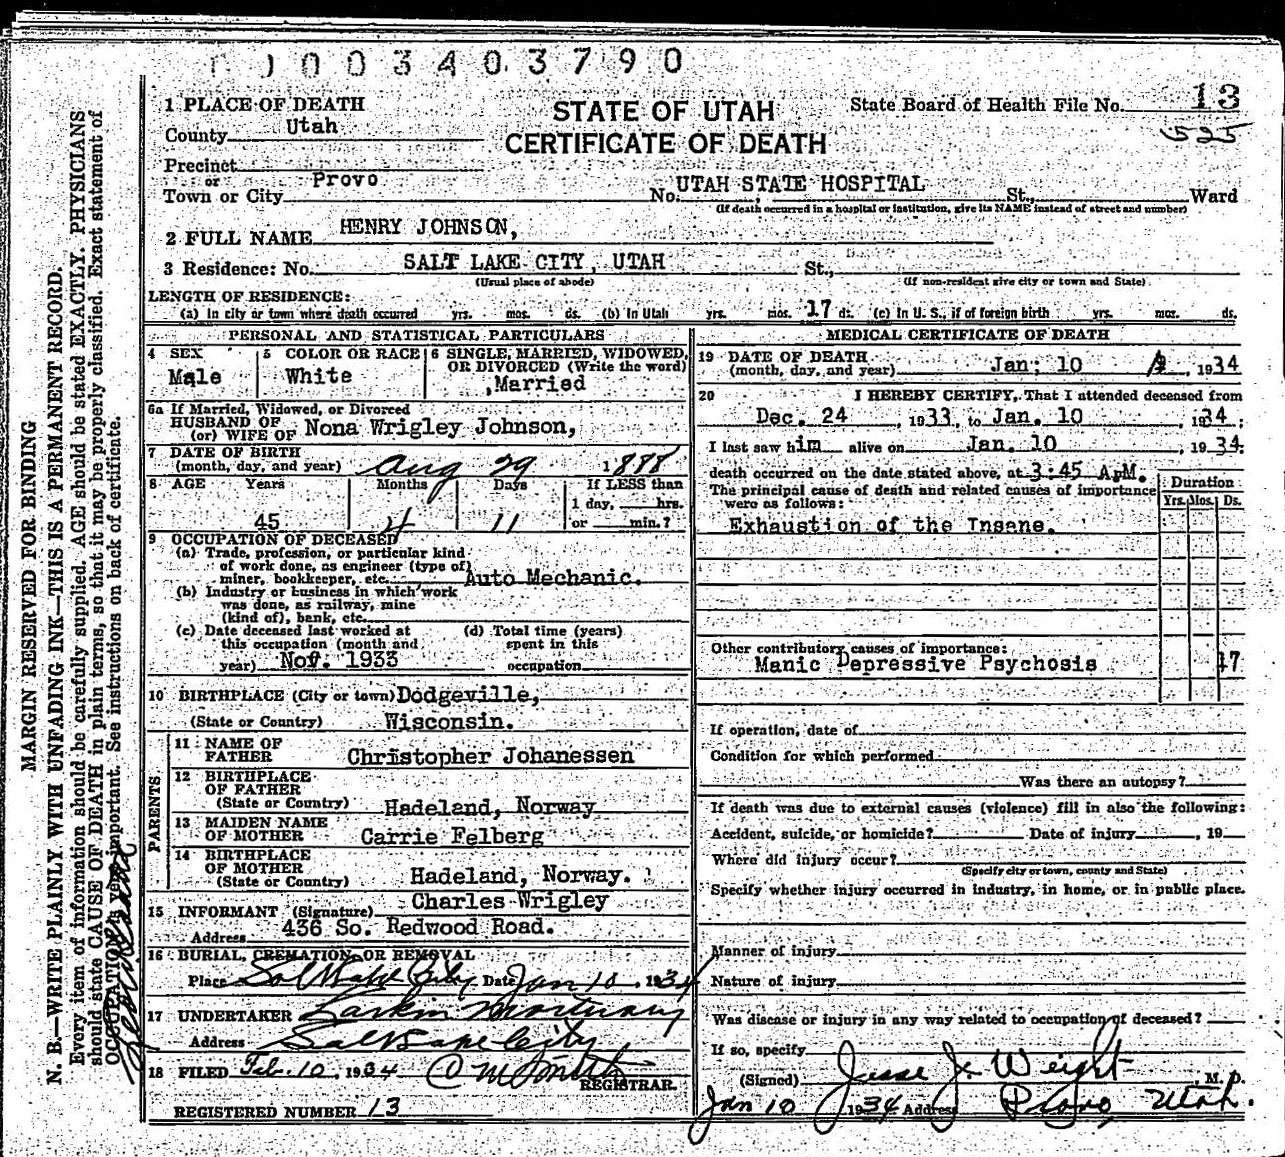 0 0 3 4 0 3 7 9 0
1 PLACE OF DEATH
County Utah
Precinct
or
Town or City Provo
STATE OF UTAH
CERTIFICATE OF DEATH
State Board of Health File No. 13
525
No. UTAH STATE HOSPITAL St., Ward
(If death occurred in a hospital or institution, give its NAME instead of street and number)
2 FULL NAME HENRY JOHNSON,
3 Residence: No. SALT LAKE CITY, UTAH St.,
(Usual place of abode) (If non-resident give city or town and State)
LENGTH OF RESIDENCE:
(a) In city or town where death occurred yrs. mos. ds. (b) In Utah yrs. mos. 17 ds. (c) In U. S., if of foreign birth yrs. mos. ds.
PERSONAL AND STATISTICAL PARTICULARS
4 SEX
Male
5 COLOR OR RACE
White
6 SINGLE, MARRIED, WIDOWED,
OR DIVORCED (Write the word)
Married
6a If Married, Widowed, or Divorced
HUSBAND OF
(or) WIFE OF Nona Wrigley Johnson,
7 DATE OF BIRTH
(month, day, and year) Aug 29 1888
8 AGE Years Months Days If LESS than
1 day, hrs.
45 4 11 or min.?
9 OCCUPATION OF DECEASED
(a) Trade, profession, or particular kind
of work done, as engineer (type of)
miner, bookkeeper, etc. Auto Mechanic.
(b) Industry or business in which work
was done, as railway, mine
(kind of), bank, etc.
(c) Date deceased last worked at
this occupation (month and
year) Nov. 1933
(d) Total time (years)
spent in this
occupation
10 BIRTHPLACE (City or town) Dodgeville,
(State or Country) Wisconsin.
PARENTS
11 NAME OF
FATHER Christopher Johanessen
12 BIRTHPLACE
OF FATHER
(State or Country) Hadeland, Norway
13 MAIDEN NAME
OF MOTHER Carrie Felberg
14 BIRTHPLACE
OF MOTHER
(State or Country) Hadeland, Norway.
15 INFORMANT (Signature) Charles Wrigley
Address 436 So. Redwood Road.
16 BURIAL, CREMATION, OR REMOVAL
Place Salt Lake City Date Jan 10, 1934
17 UNDERTAKER Larkin Mortuary
Address Salt Lake City
18 FILED Feb. 10, 1934 C M Smith
REGISTRAR.
REGISTERED NUMBER 13
MEDICAL CERTIFICATE OF DEATH
19 DATE OF DEATH
(month, day, and year) Jan. 10, 1934
20 I HEREBY CERTIFY, That I attended deceased from
Dec. 24, 1933, to Jan. 10, 1934;
I last saw him alive on Jan. 10, 1934;
death occurred on the date stated above, at 3:45 A.M.
The principal cause of death and related causes of importance
were as follows:
Duration
Yrs. Mos. Ds.
Exhaustion of the Insane.
Other contributory causes of importance:
Manic Depressive Psychosis 17
If operation, date of
Condition for which performed
Was there an autopsy?
If death was due to external causes (violence) fill in also the following:
Accident, suicide, or homicide? Date of injury, 19
Where did injury occur?
(Specify city or town, county and State)
Specify whether injury occurred in industry, in home, or in public place.
Manner of injury
Nature of injury
Was disease or injury in any way related to occupation of deceased?
If so, specify
(Signed) Jesse J. Weight, M. D.
Jan 10 1934 Address Provo, Utah.
MARGIN RESERVED FOR BINDING
N. B.—WRITE PLAINLY WITH UNFADING INK—THIS IS A PERMANENT RECORD.
Every item of information should be carefully supplied. AGE should be stated EXACTLY. PHYSICIANS
should state CAUSE OF DEATH in plain terms, so that it may be properly classified. Exact statement of
OCCUPATION is very important. See instructions on back of certificate.